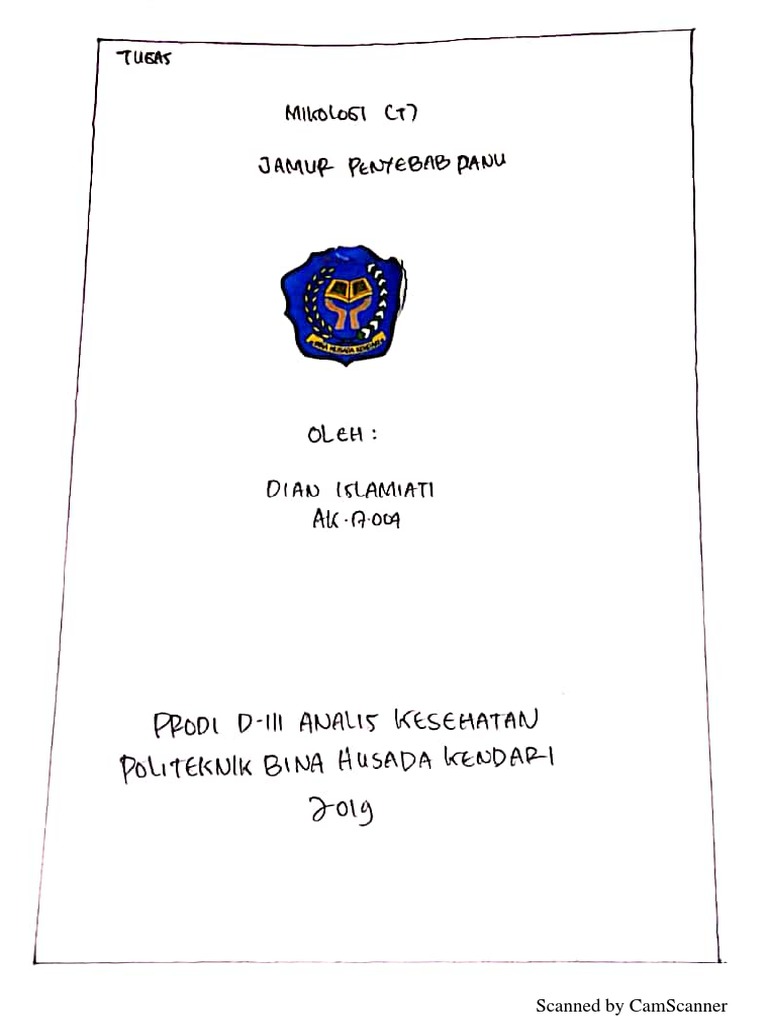 TUGAS
MIKOLOGI (T)
JAMUR PENYEBAB PANU
BINA HUSADA KENDARI
OLEH :
DIAN ISLAMIATI
AK.17.004
PRODI D-III ANALIS KESEHATAN
POLITEKNIK BINA HUSADA KENDARI
2019
Scanned by CamScanner